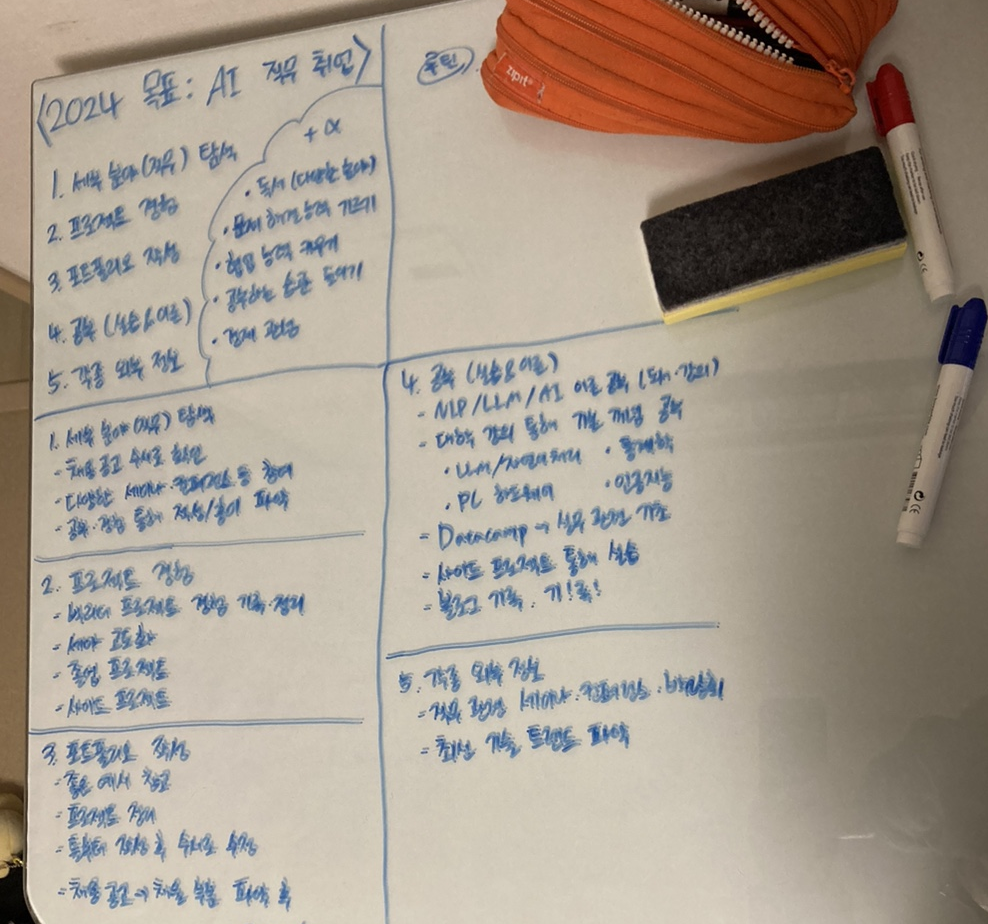 <2024 목표: AI 직무 취업>
1. 세부 분야(직무) 탐색
2. 프로젝트 경험
3. 포트폴리오 작성
4. 공부 (실습&이론)
5. 각종 외부 정보
+ α
• 독서 (다양한 분야)
• 문제 해결 능력 기르기
• 협업 능력 키우기
• 공부하는 습관 들이기
• 경제 관념
루틴
zipit
1. 세부 분야(직무) 탐색
- 채용 공고 수시로 확인
- 다양한 세미나·컨퍼런스 등 참여
- 공부·경험 통해 적성/흥미 파악
2. 프로젝트 경험
- 프로젝트 경험 기록·정리
- 세야 고도화
- 졸업 프로젝트
- 사이드 프로젝트
3. 포트폴리오 작성
- 좋은 예시 참고
- 프로젝트 정리
- 작성 후 수시로 수정
- 채용 공고 → 부분 파악 후
4. 공부 (실습&이론)
- NLP/LLM/AI 이론 공부 (독서·강의)
- 대학 강의 통해 기본 개념 공부
• LLM/자연어처리 • 통계학
• PL 하드웨어 • 인공지능
- Datacamp → 실무 관련 기초
- 사이드 프로젝트 통해 실습
- 블로그 기록. 기!록!
5. 각종 외부 정보
- 직무 관련 세미나·컨퍼런스·박람회
- 최신 기술 트렌드 파악